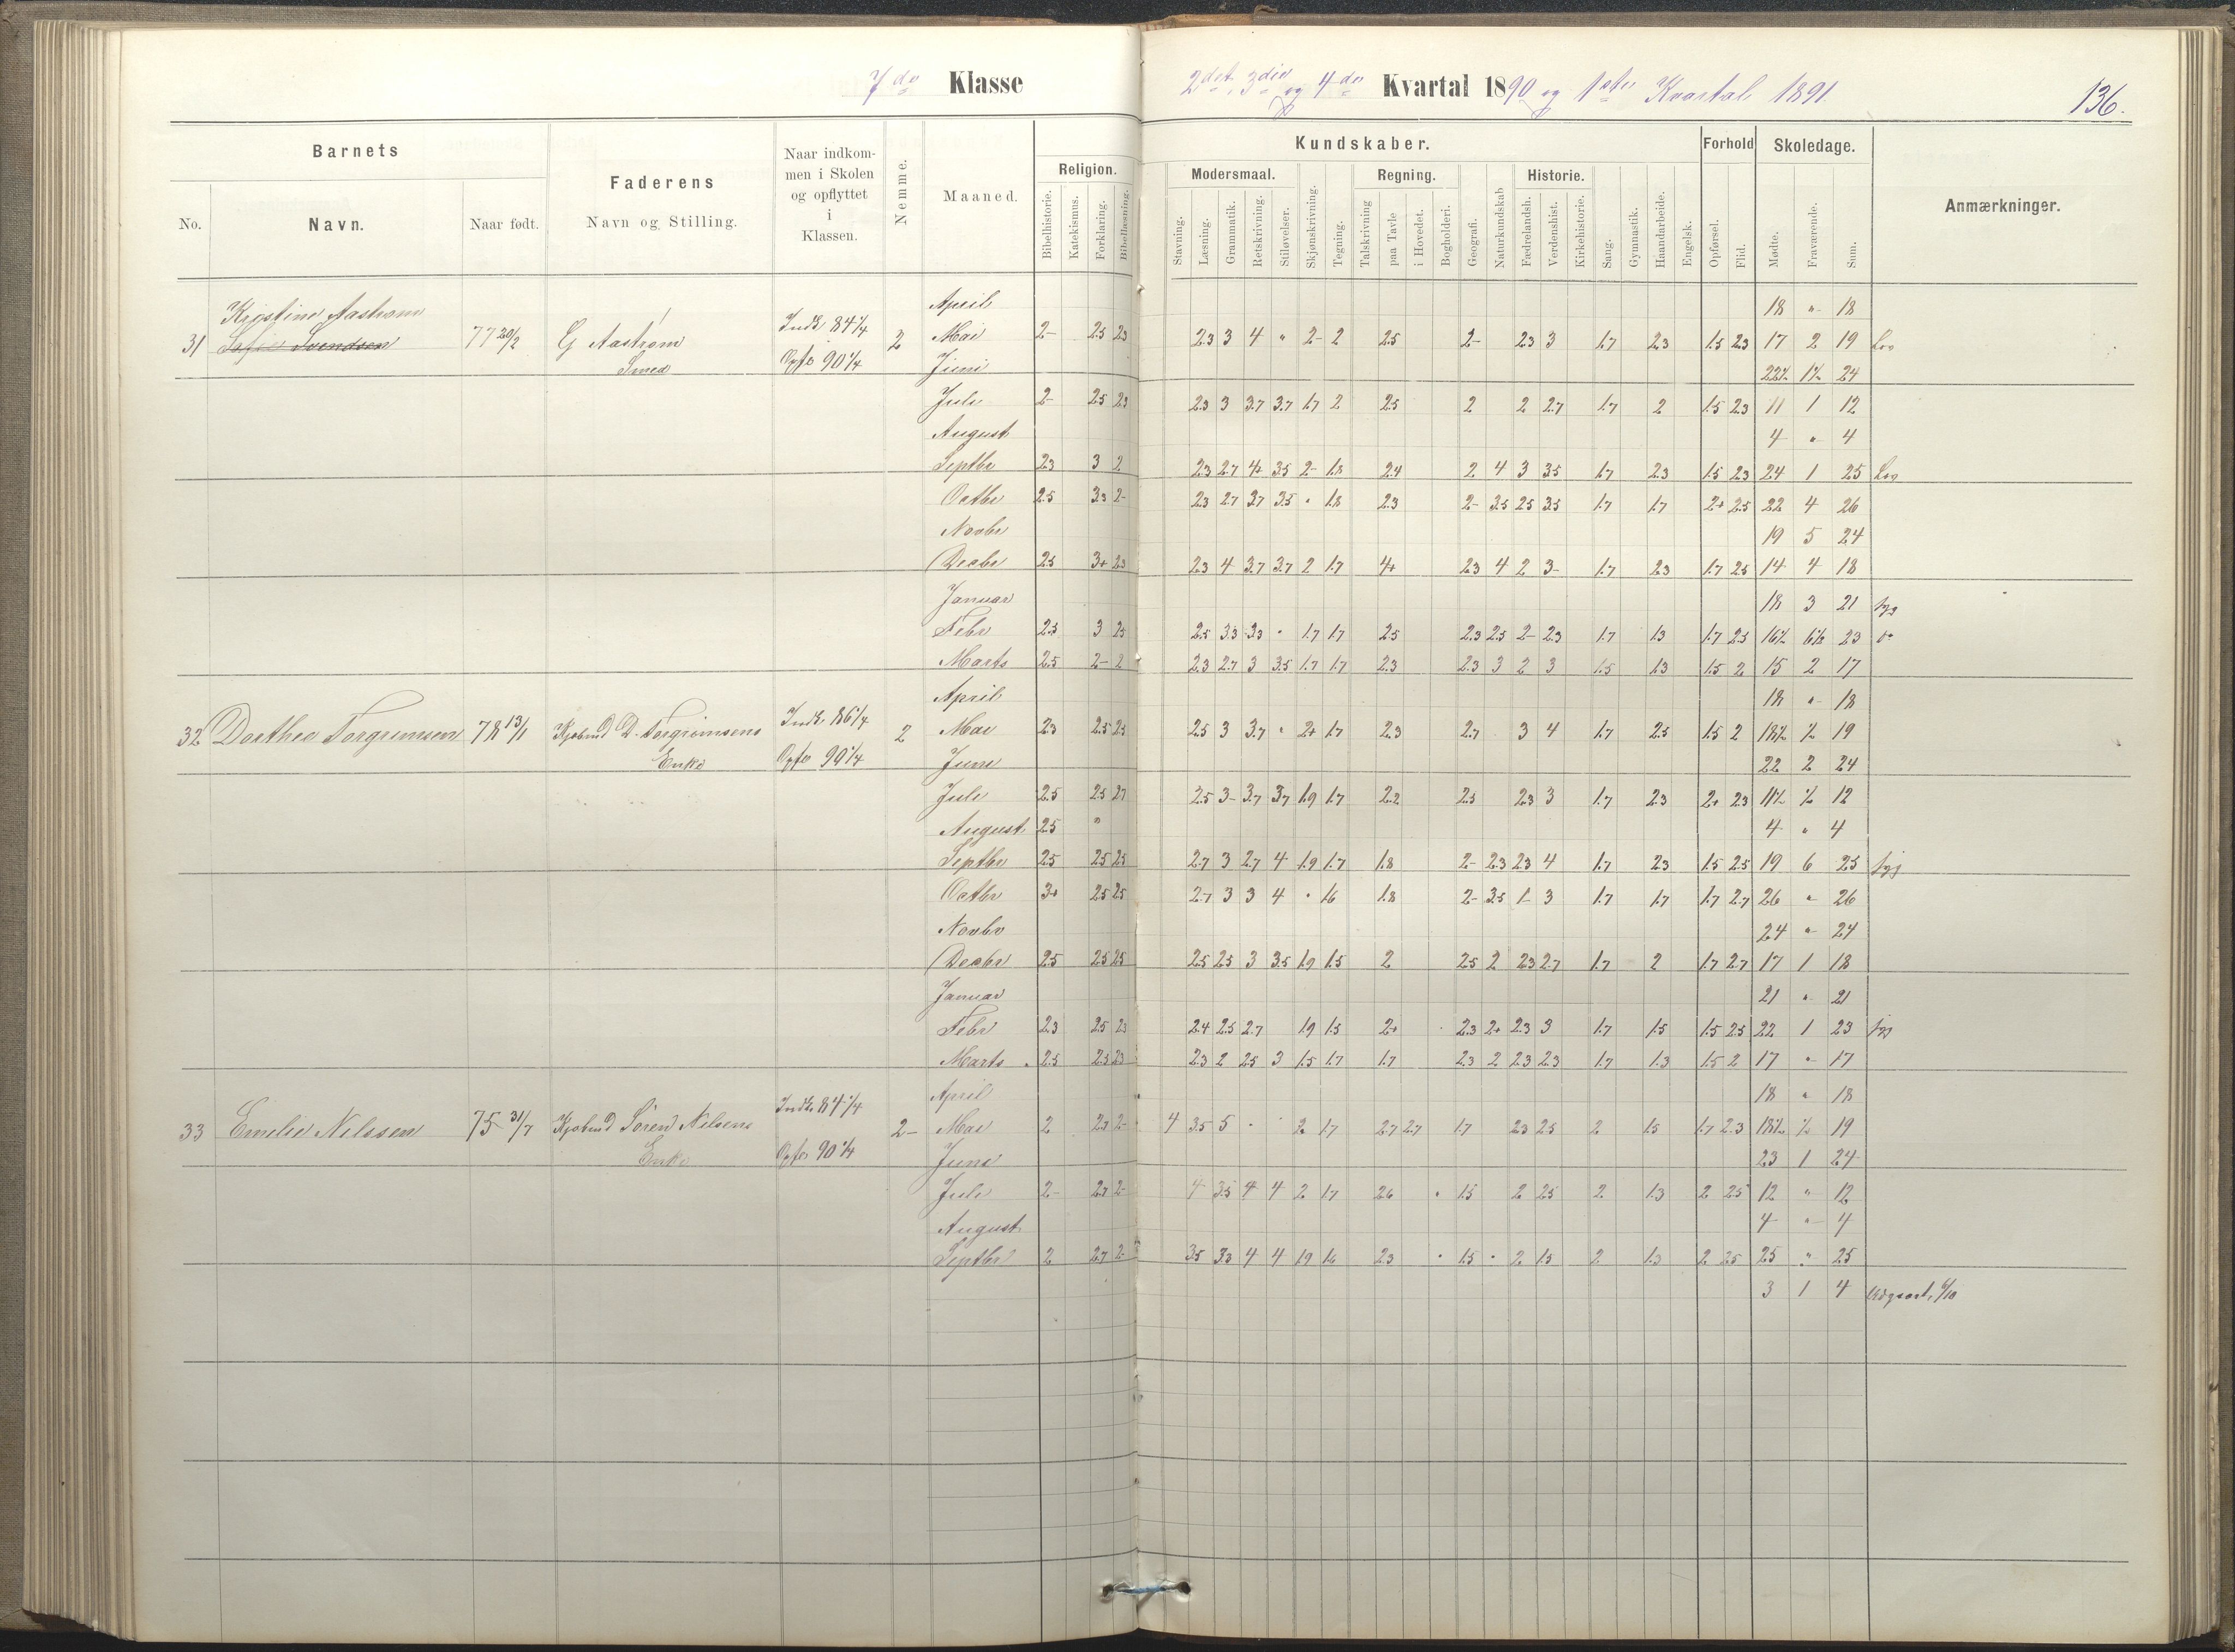 7de Klasse
2det, 3die og 4de Kvartal 1890 og 1ste Kvartal 1891.
136.
Barnets
Faderens
Naar indkommen i Skolen og opflyttet i Klassen.
Nemme.
Maaned.
No.
Navn.
Naar født.
Navn og Stilling.
Religion.
Bibelhistorie.
Katekismus.
Forklaring.
Bibellæsning.
Kundskaber.
Modersmaal.
Stavning.
Læsning.
Grammatik.
Retskrivning.
Stiløvelser.
Skjønskrivning.
Tegning.
Regning.
Talskrivning
paa Tavle
i Hovedet.
Bogholderi.
Geografi.
Naturkundskab
Historie.
Fædrelandsh.
Verdenshist.
Kirkehistorie.
Sang.
Gymnastik.
Haandarbeide.
Engelsk.
Forhold
Opførsel.
Flid.
Skoledage.
Mødte.
Fraværende.
Sum.
Anmærkninger.
April 18 " 18
31 Kristine Aastrøm
Sofie Svendsen 77 20/2 G Aastrøm Smed Indk 84 1/4 Opfl 90 1/4 2
Mai 2- 2.5 2.3 2.3 3 4 " 2- 2 2.5 2- 2.3 3 1.7 2.3 1.5 2.3 17 2 19
Juni 22½ 1½ 24
Juli 2- 2.5 2.3 2.3 3 3.7 3.7 1.7 2 2.5 2 2 2.7 1.7 2 1.5 2.3 11 1 12
August 4 " 4
Septbr 2.3 3 2 2.3 2.7 4+ 3.5 2- 1.8 2.4 2 4 3 3.5 1.7 2.3 1.5 2.3 24 1 25
Octbr 2.5 3.3 2- 2.3 2.7 3.7 3.5 " 1.8 2.3 2- 3.5 2.5 3.5 1.7 1.7 2+ 2.5 22 4 26
Novbr 19 5 24
Decbr 2.5 3+ 2.3 2.3 4 3.7 3.7 2 1.7 4+ 2.3 4 2 3- 1.7 2.3 1.7 2.5 14 4 18
Januar 18 3 21 syg
Febr 2.5 3 2.5 2.5 3.3 3.3 " 1.7 1.7 2.5 2.3 2.5 2- 2.3 1.7 1.3 1.7 2.5 16½ 6½ 23
Marts 2.5 2- 2 2.3 2.7 3 3.5 1.7 1.7 2.3 2.3 3 2 3 1.5 1.3 1.5 2 15 2 17
April 18 " 18
32 Dorthea Torgrimsen 78 13/1 Kjøbmd D. Torgrimsens Enke Indk. 86 1/4 Opfl 90 1/4 2
Mai 2.3 2.5 2.5 2.5 3 3.7 " 2+ 1.7 2.3 2.7 3 4 1.7 2.5 1.5 2 18½ ½ 19
Juni 22 2 24
Juli 2.5 2.5 2.7 2.5 3- 3.7 3.7 1.9 1.7 2.2 2.5 2.3 3 1.7 2.3 2+ 2.3 11½ ½ 12
August 2.5 " 4 " 4
Septbr 2.5 2.5 2.5 2.7 3 2.7 4 1.9 1.7 1.8 2- 2.3 2.3 4 1.7 2.3 1.5 2.5 19 6 25 syg
Octbr 3+ 2.5 2.5 2.7 3 3 4 " 1.6 1.8 2- 3.5 1- 3 1.7 1.7 1.7 2.7 26 " 26
Novbr 24 " 24
Decbr 2.5 2.5 2.5 2.5 2.5 3 3.5 1.9 1.5 2 2.5 2 2.3 2.7 1.7 2 1.7 2.7 17 1 18
Januar 21 " 21
Febr 2.3 2.5 2.3 2.4 2.5 2.7 1.9 1.5 2+ 2.3 2+ 2.3 3 1.7 1.5 1.5 2.5 22 1 23 syg
Marts 2.5 2.5 2.3 2.3 2 2.5 3 1.5 1.7 1.7 2.3 2 2.3 2.3 1.7 1.3 1.5 2 17 " 17
April 18 " 18
33 Emelie Nilssen 75 31/7 Kjøbmd Søren Nilsens Enke Indk 84 1/4 Opfl 90 1/4 2-
Mai 2 2.3 2- 4 3.5 5 " 2 1.7 2.7 2.7 1.7 2.3 2.5 2 1.5 1.7 2.3 18½ ½ 19
Juni 23 1 24
Juli 2- 2.7 2- 4 3.5 4 4 2 1.7 2.6 " 1.5 2 2.5 2 1.3 2 2.5 12 " 12
August 4 " 4
Septbr 2 2.7 2- 3.5 3.3 4 4 1.9 1.6 2.3 " 1.5 " 2 1.5 2 1.3 2 2.5 25 " 25
3 1 4 Udgaaet 6/10